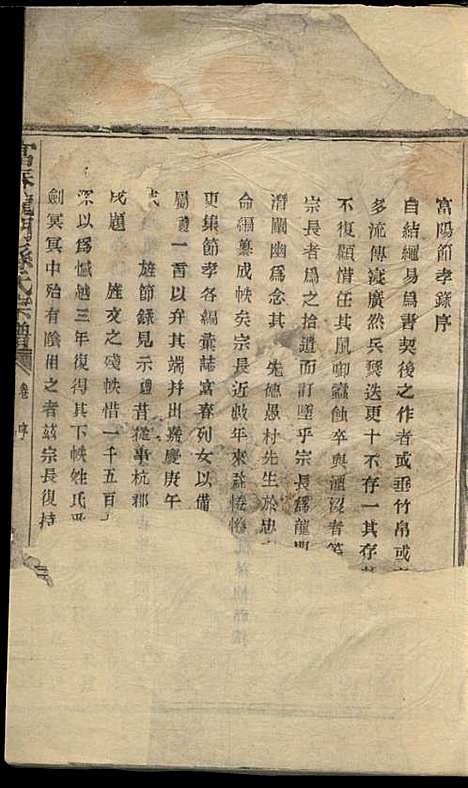 富陽節孝錄序
自結繩易爲書契後之作者或垂竹帛或
多流傳滋廣然兵燹迭更十不存一其存
不復顧惜任其風卿蠹蝕卒與湮沒者
宗長者爲之拾遺而訂墜乎宗長爲龍門
潛闡幽爲念其 先德愚村先生於忠
命編纂成帙矣宗長近數年來詠惓惓
更集節孝各編彙誌富春列女以備
屬禮一言以弁其端并出嘉慶庚午
旌節錄見示禮昔從事杭郡
成題 旌交之殘帙惜一千五百
深以爲憾越三年復得其下帙姓氏
劍冥冥中殆有陰相之者茲宗長復持
富春龍門孫氏宗譜 卷 序